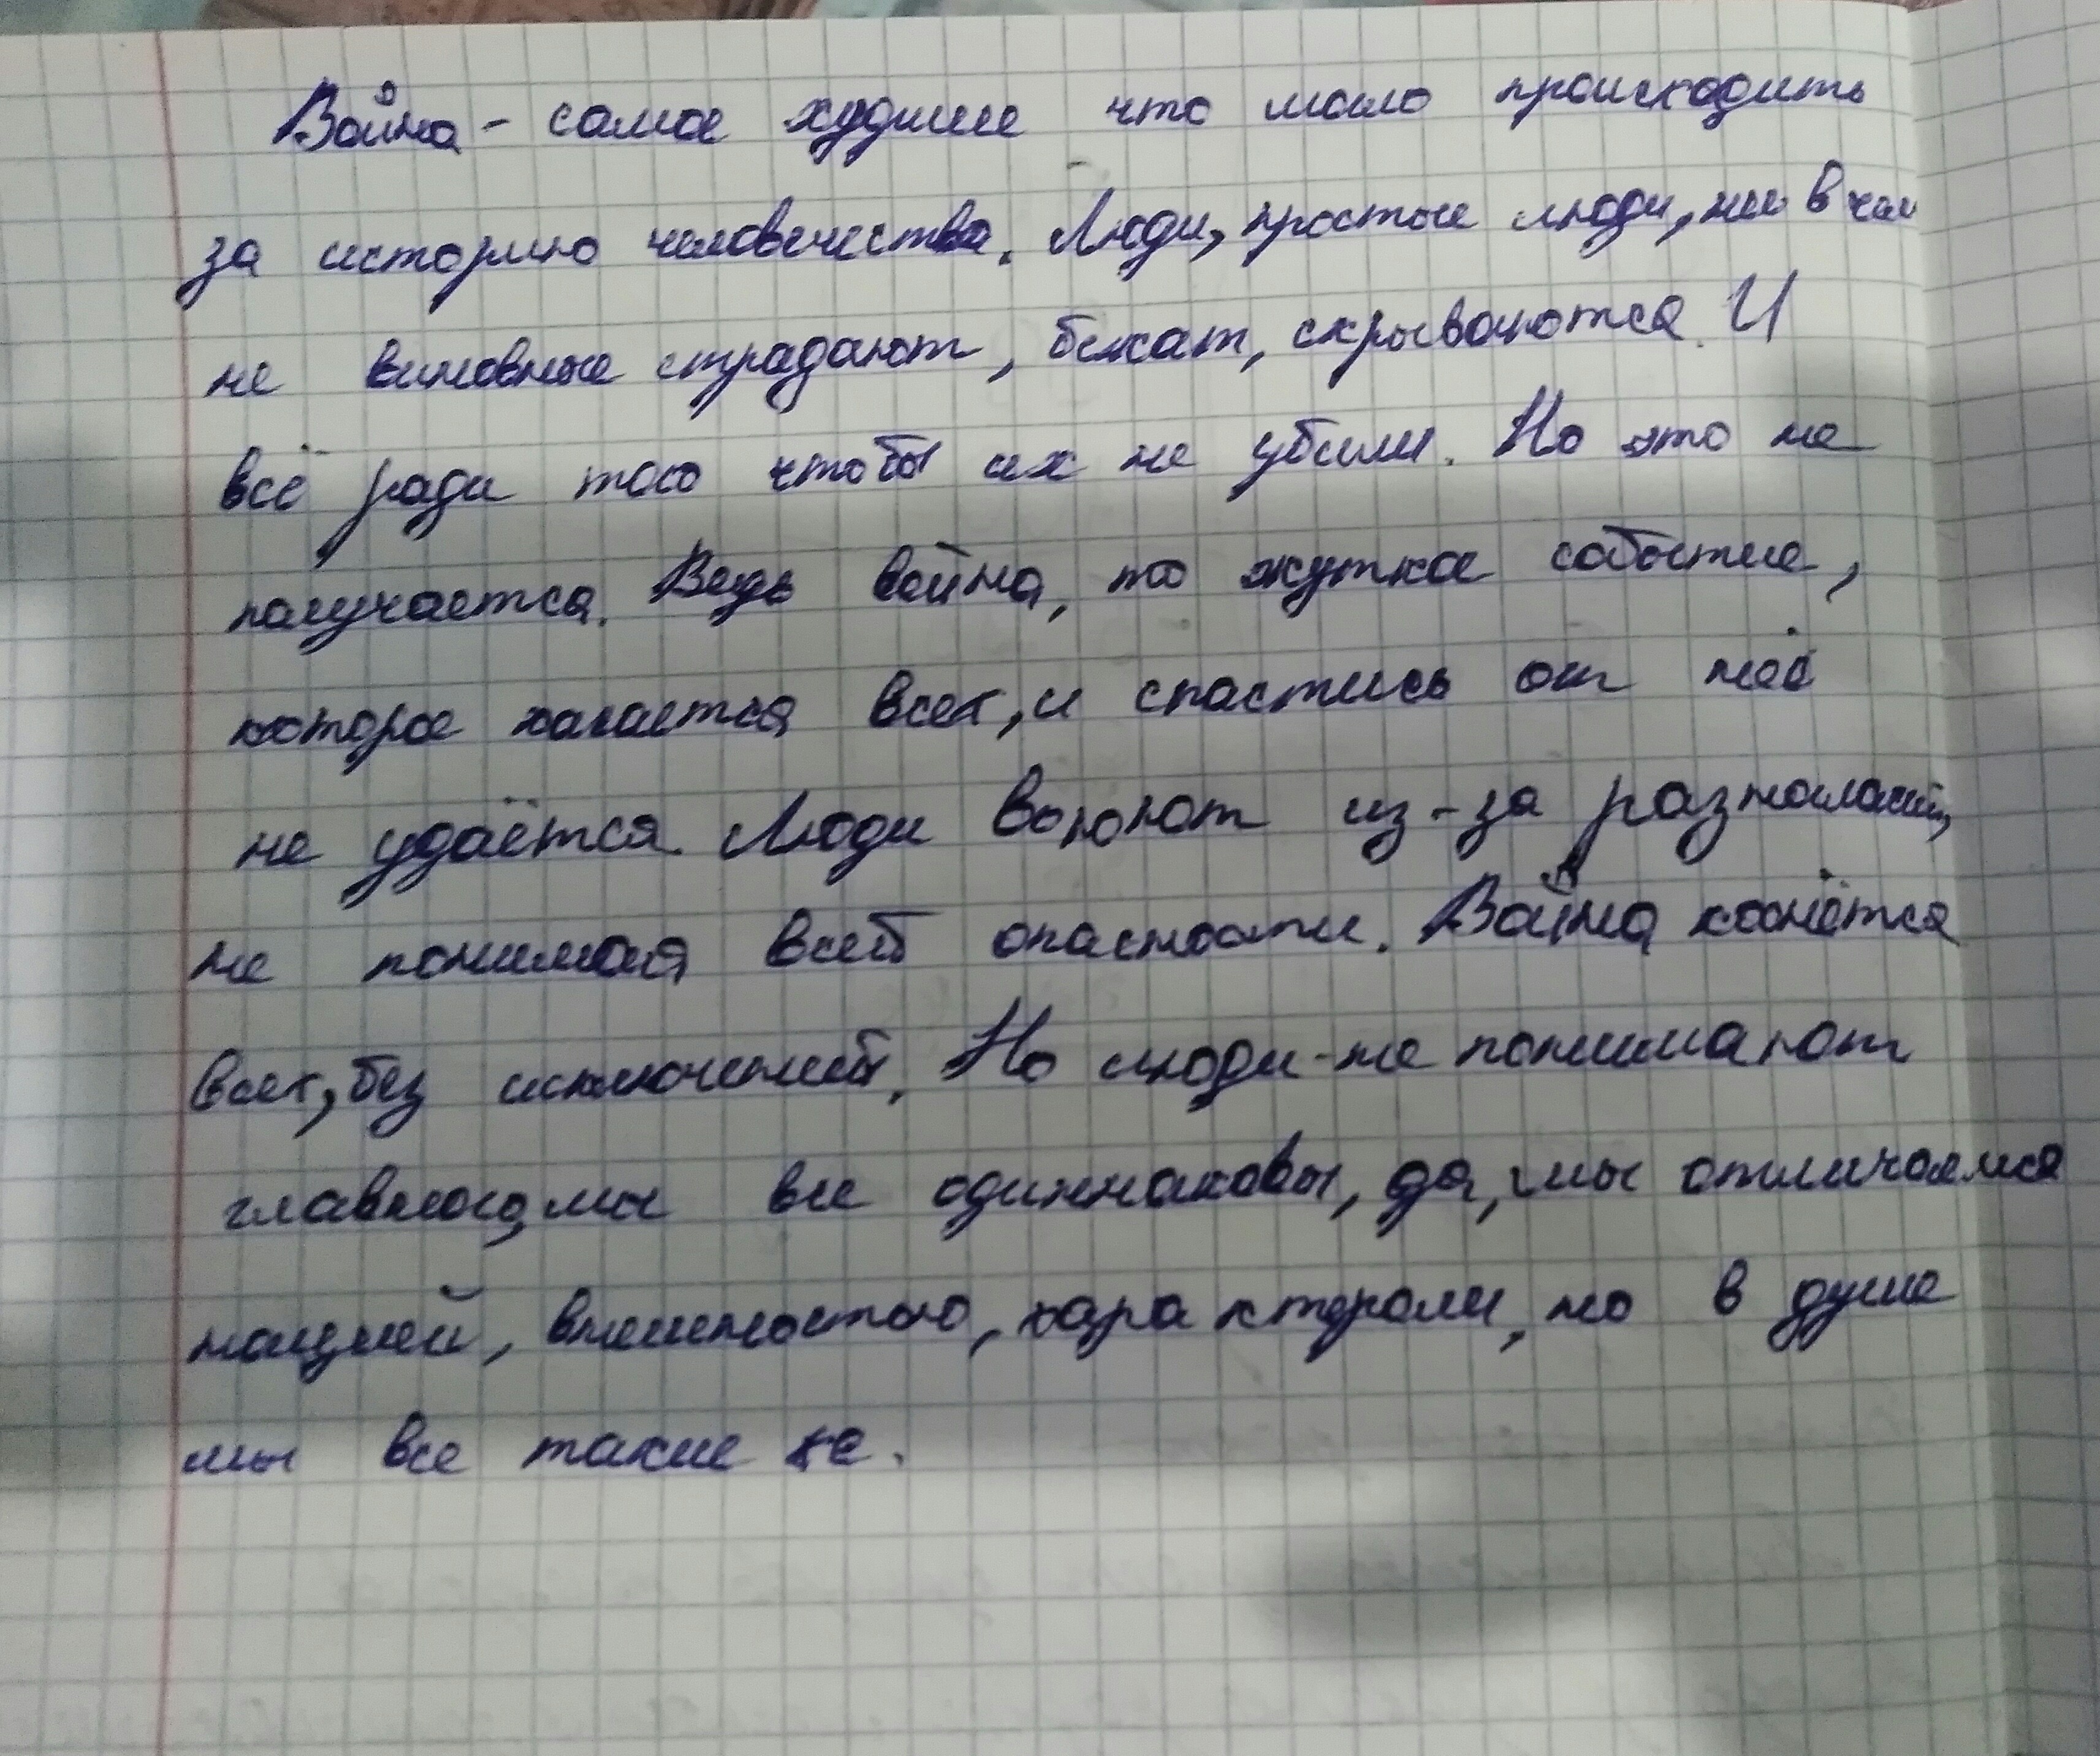 Война - самое худшее что могло происходить
за историю человечества. Люди, простые люди, ни в чем
не виновные страдают, бежат, скрываются. И
всё ради того чтобы их не убили. Но это не
получается. Ведь война, это жуткое событие,
которое касается всех, и спастись от неё
не удаётся. Люди воюют из-за разногласий,
не понимая всей опасности. Война коснётся
всех, без исключений. Но люди не понимают
главного, мы все одинаковы, да, мы отличаемся
нацией, внешностью, характером, но в душе
мы все такие же.